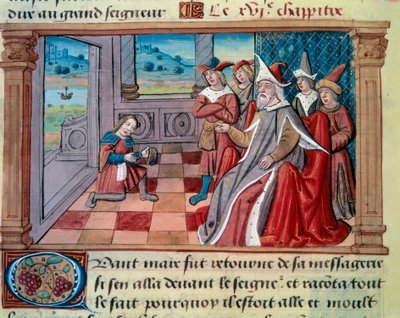 dire au grand seigneur
Le xvi.e chappitre
Quant marc fut retourne de sa messagerie
si sen alla devant le seigne.r et racota tout
le fait pourquoy il estoit alle et moult